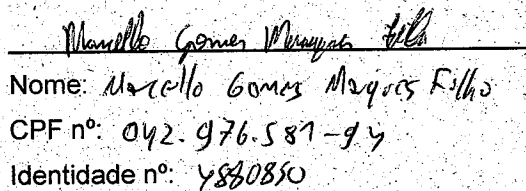 Marcello Gomes Marques Filho
Nome: Marcello Gomes Marques Filho
CPF nº: 042.976.581-94
Identidade nº: 4880850